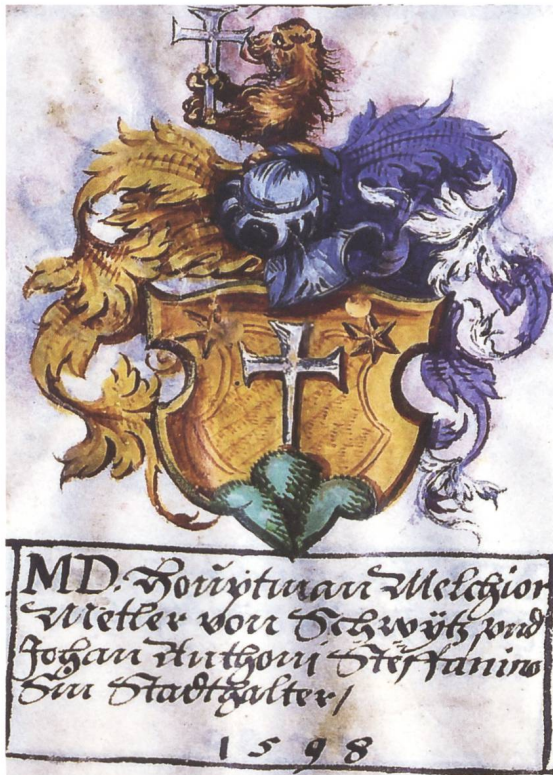 MD. Houptman Melchior
Metler von Schwÿtz, vnd
Johan Anthoni Steffanino
Sin Stadthalter /
1598